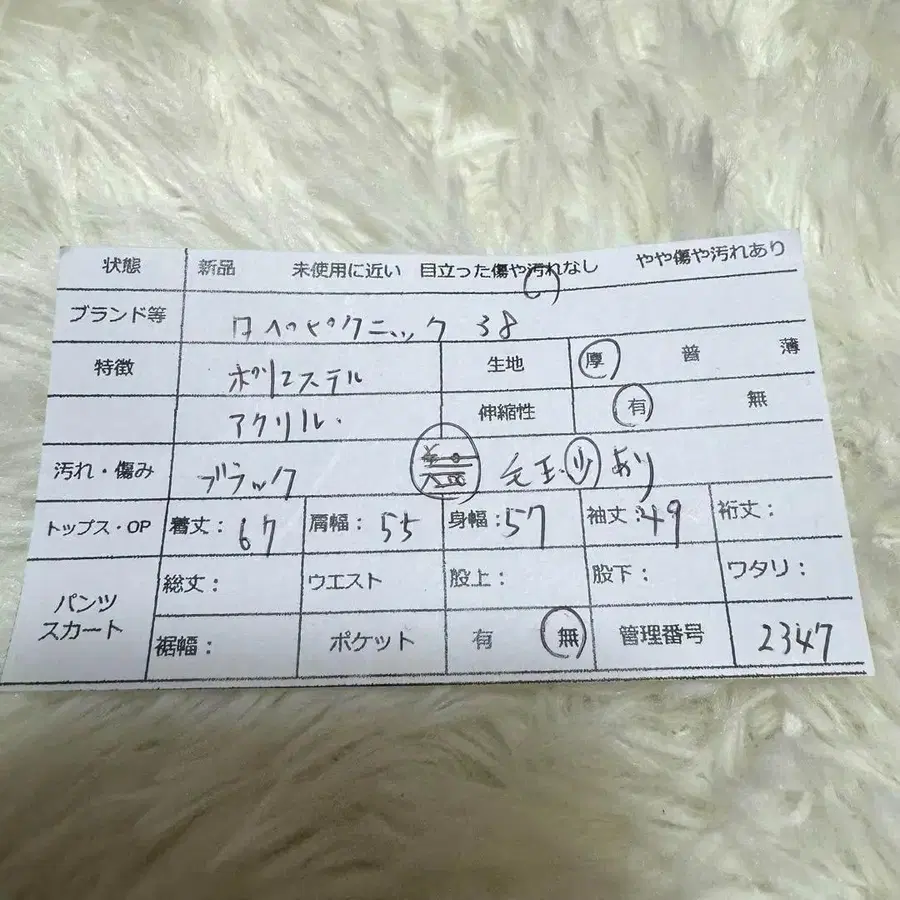 状態 新品 未使用に近い 目立った傷や汚れなし やや傷や汚れあり
ブランド等 ロペピクニック 38
特徴 ポリエステル 生地 厚 普 薄
アクリル. 伸縮性 有 無
汚れ・傷み ブラック 毛玉 少 あり
トップス・OP 着丈: 67 肩幅: 55 身幅: 57 袖丈: 49 裄丈:
パンツ スカート 総丈: ウエスト 股上: 股下: ワタリ:
裾幅: ポケット 有 無 管理番号 2347